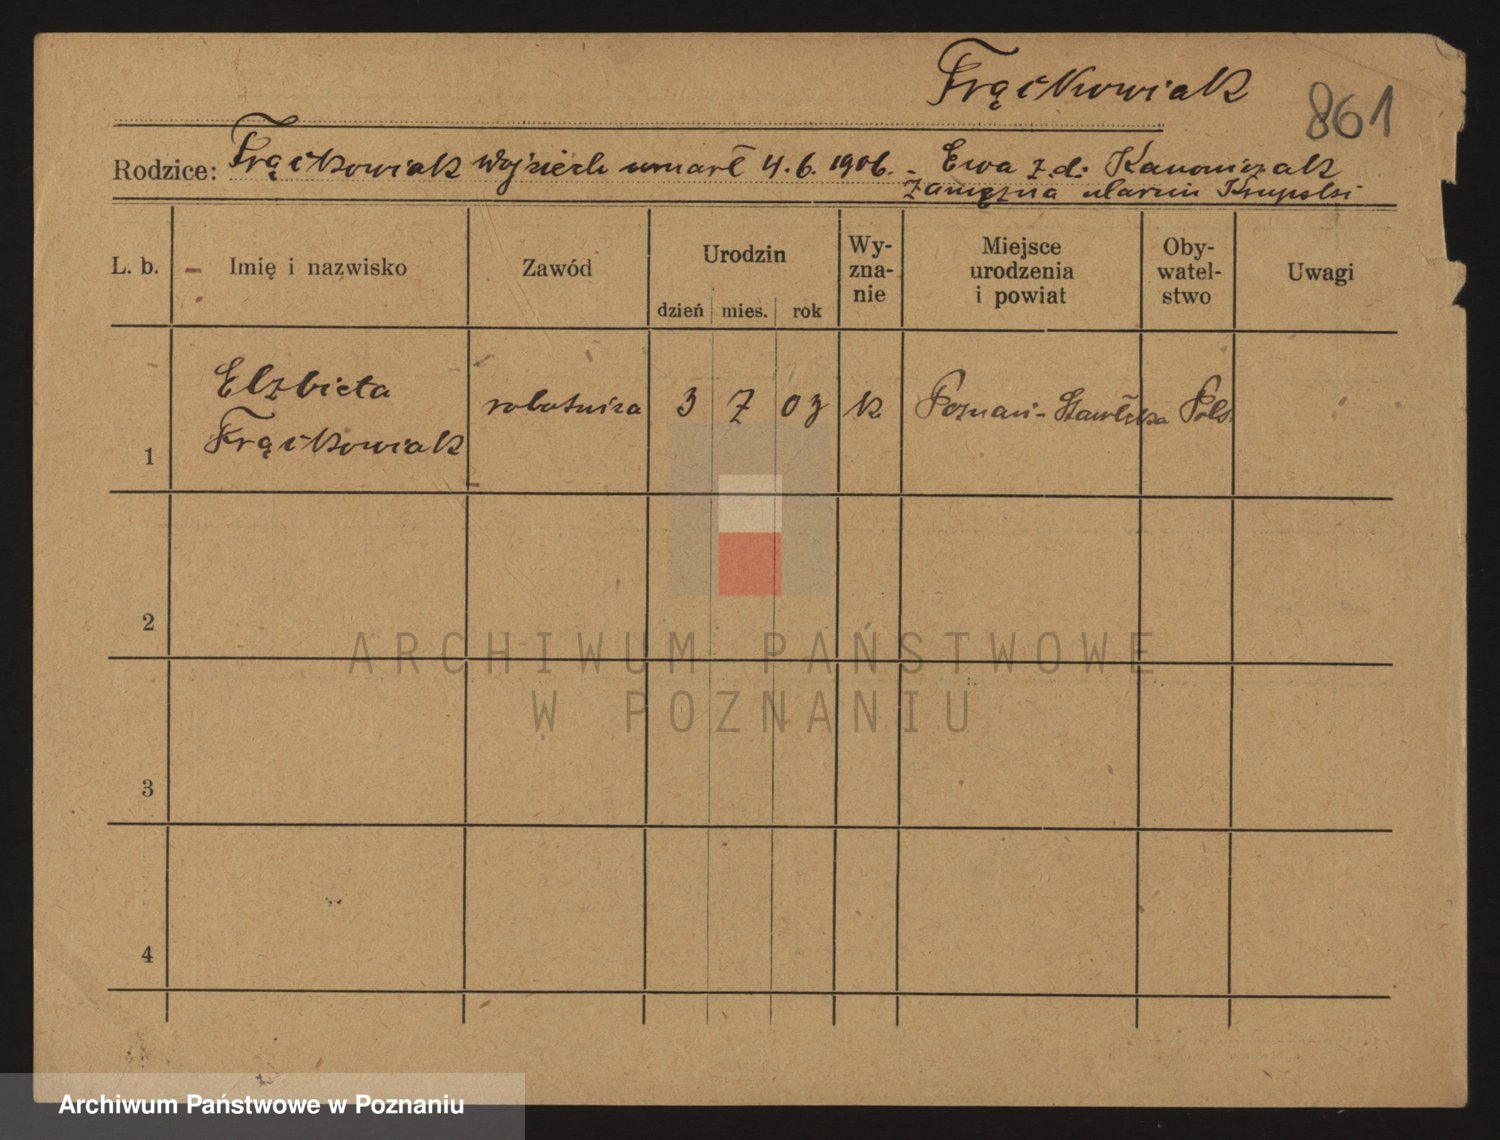 Frąckowiak
861
Rodzice: Frąckowiak Wojciech umarł 4.6.1906. - Ewa z.d. Kanoniczak
zamężna
L. b. Imię i nazwisko Zawód Urodzin Wy-zna-nie Miejsce urodzenia i powiat Oby-watel-stwo Uwagi
dzień mies. rok
1 Elzbieta Frąckowiak robotnica 3 7 03 k Poznań - Pols.
2
ARCHIWUM PAŃSTWOWE
W POZNANIU
3
4
Archiwum Państwowe w Poznaniu